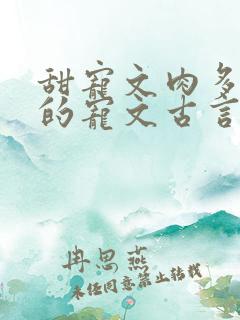 甜寵文肉多
的寵文古言
冉思燕
未经同意禁止转载